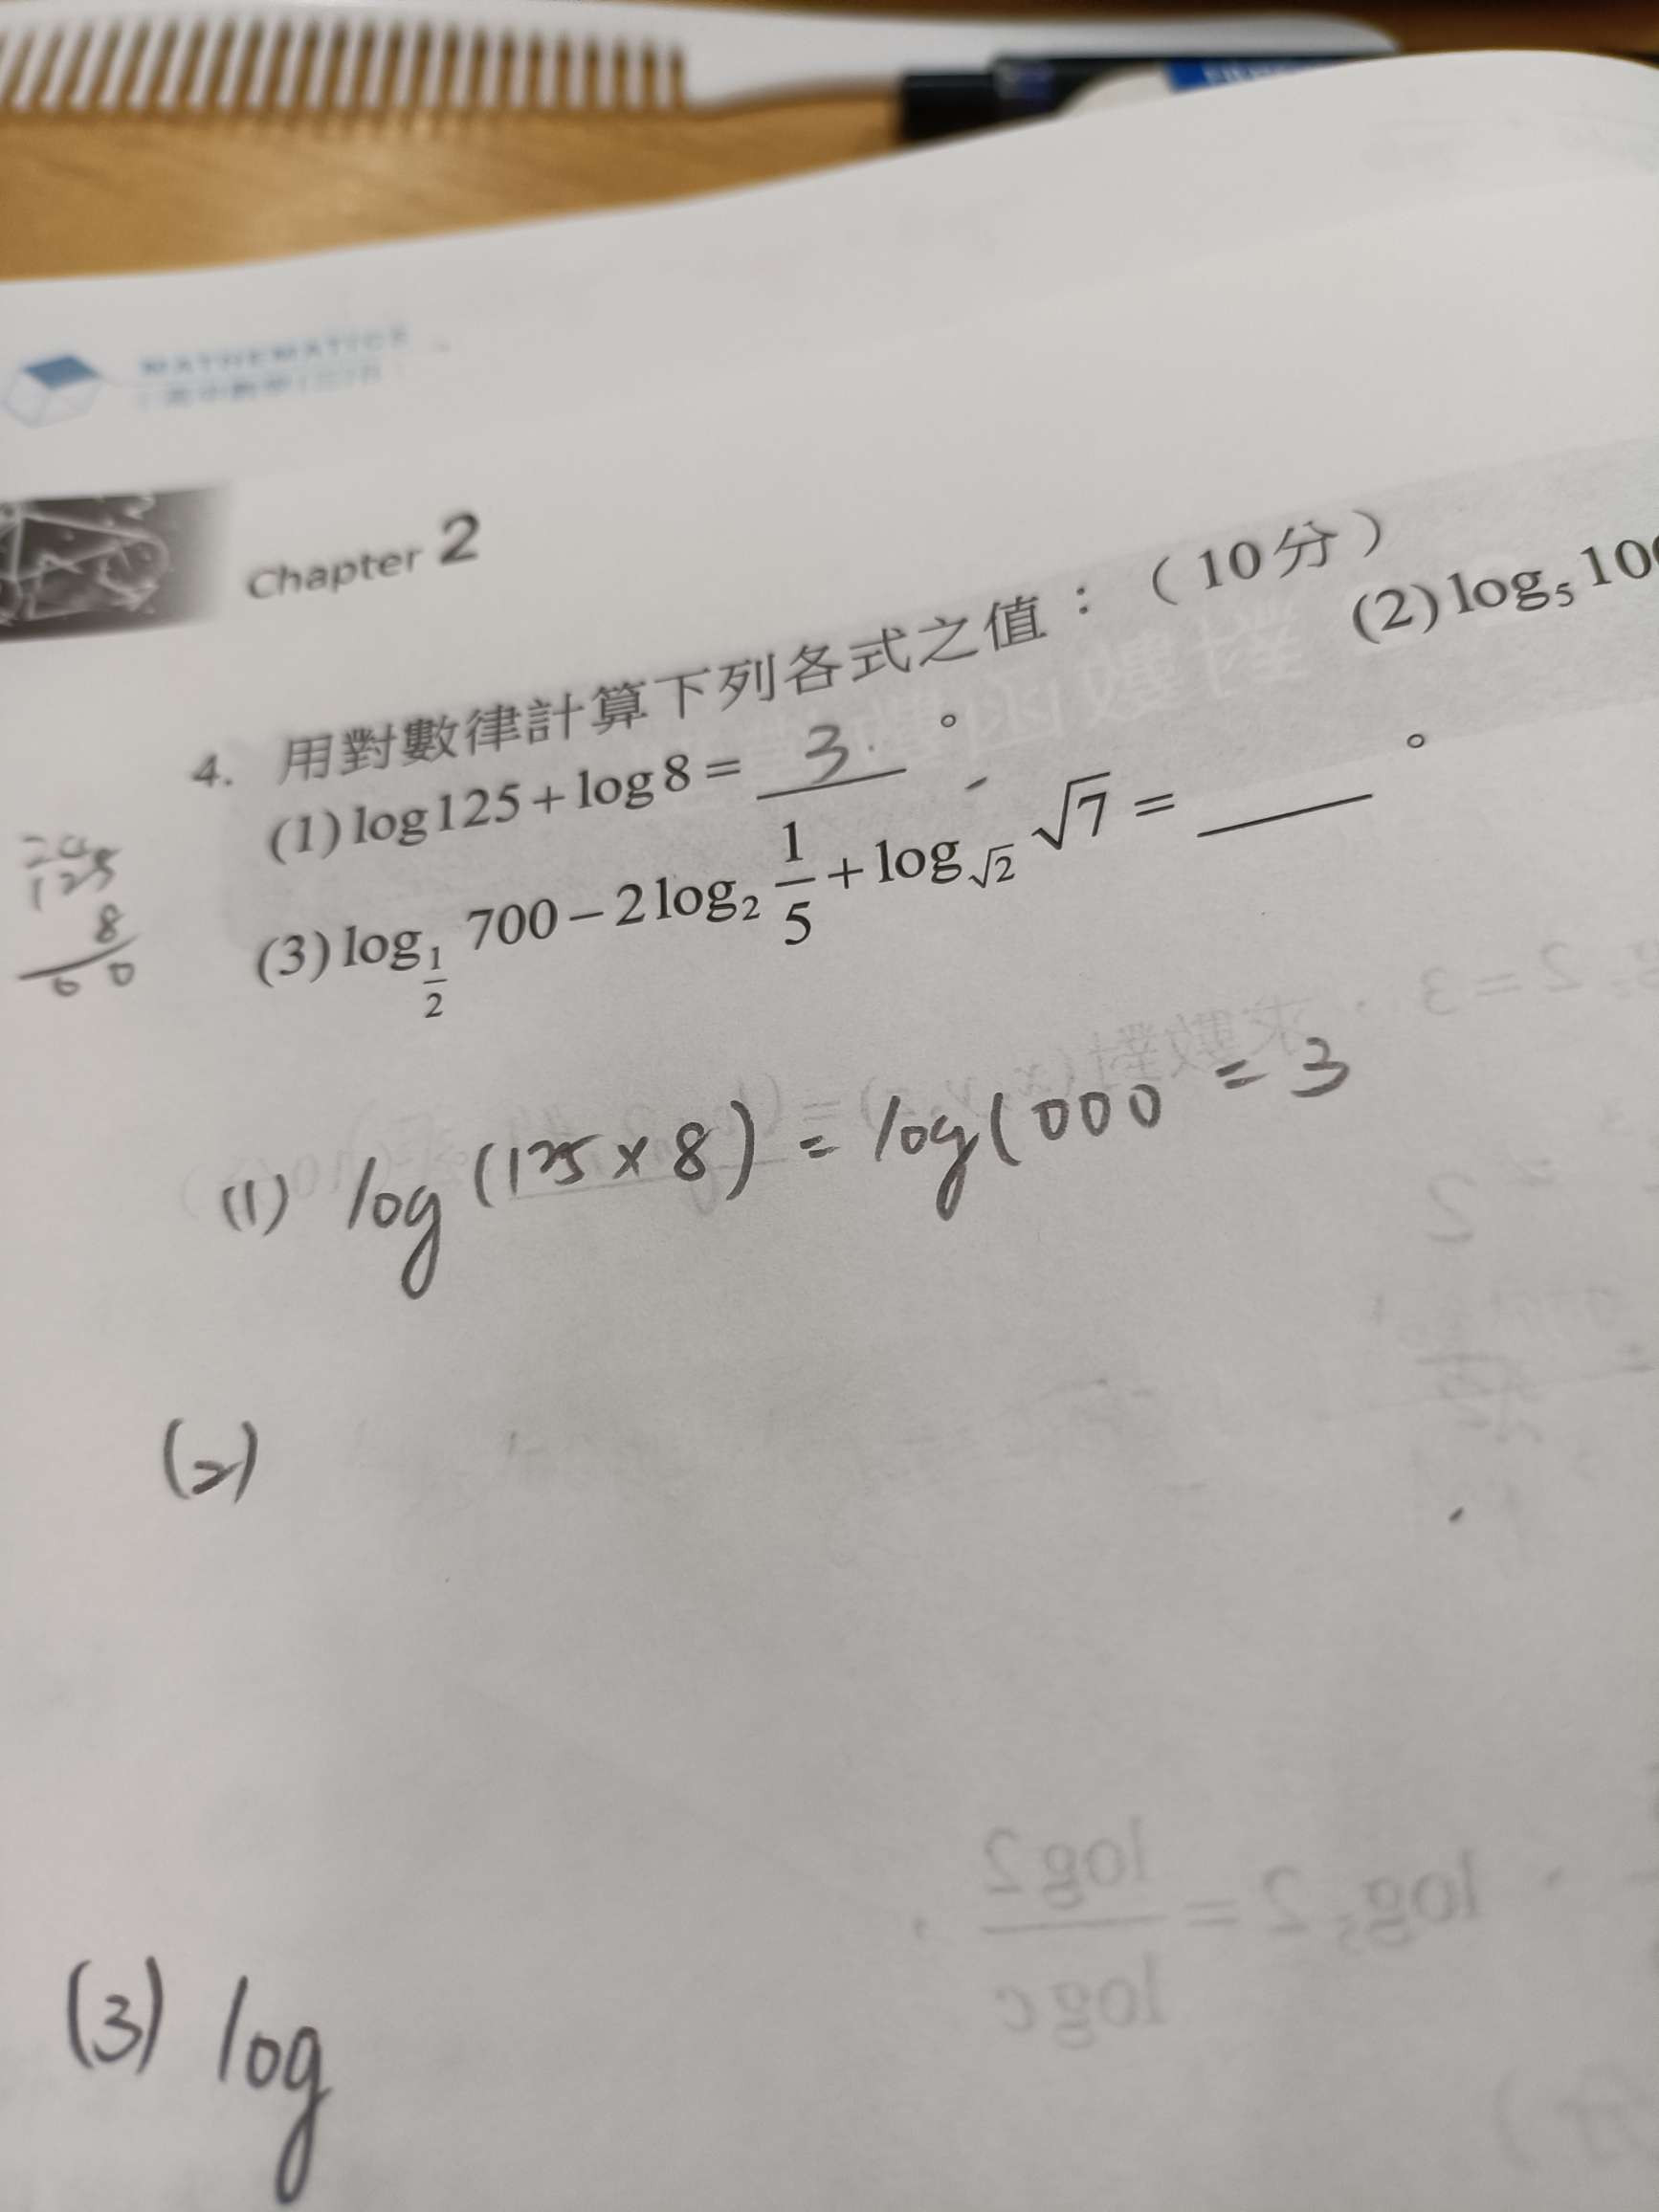 MATHEMATICS
Chapter 2
4. 用對數律計算下列各式之值：（10分）
(1) log125+log8= 3 。 (2) log₅10
(3) log_{1/2} 700−2log₂ 1/5 + log_{√2} √7 = ____ 。
125
8
00
(1) log (125×8) = log1000 = 3
(2)
(3) log